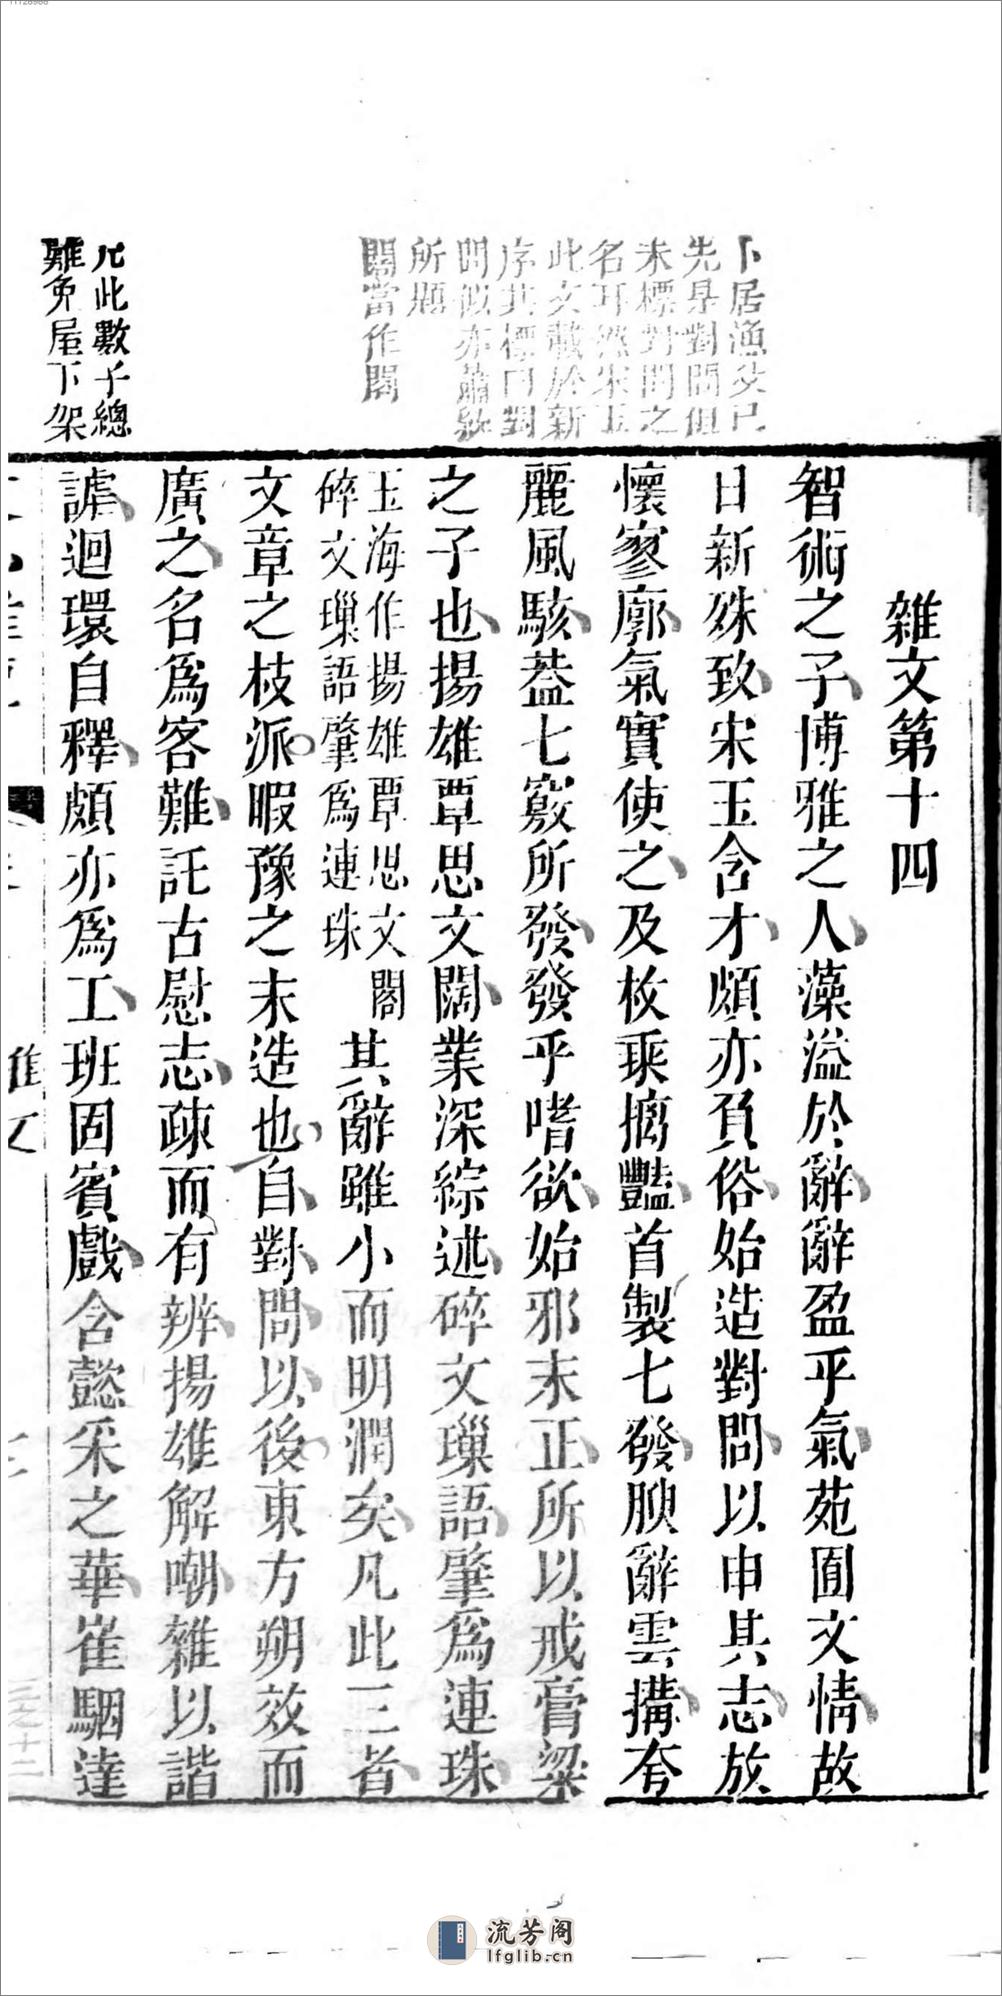 11128988
卜居漁父已
先是對問但
未標對問之
名耳然宋玉
此文載於新
序其標曰對
問似亦蕭敘
所題
闊當作閣
凡此數子總
難免屋下架
雜文第十四
智術之子博雅之人藻溢於辭辭盈乎氣苑囿文情故
日新殊致宋玉含才頗亦負俗始造對問以申其志放
懷寥廓氣實使之及枚乘摛豔首製七發腴辭雲搆夸
麗風駭蓋七竅所發發乎嗜欲始邪末正所以戒膏粱
之子也揚雄覃思文闊業深綜述碎文璅語肇爲連珠
玉海作揚雄覃思文閣
碎文璅語肇爲連珠
其辭雖小而明潤矣凡此三者
文章之枝派暇豫之末造也自對問以後東方朔效而
廣之名爲客難託古慰志疎而有辨揚雄解嘲雜以諧
謔迴環自釋頗亦爲工班固賓戲含懿采之華崔駰達
雜文
流芳阁
lfglib.cn